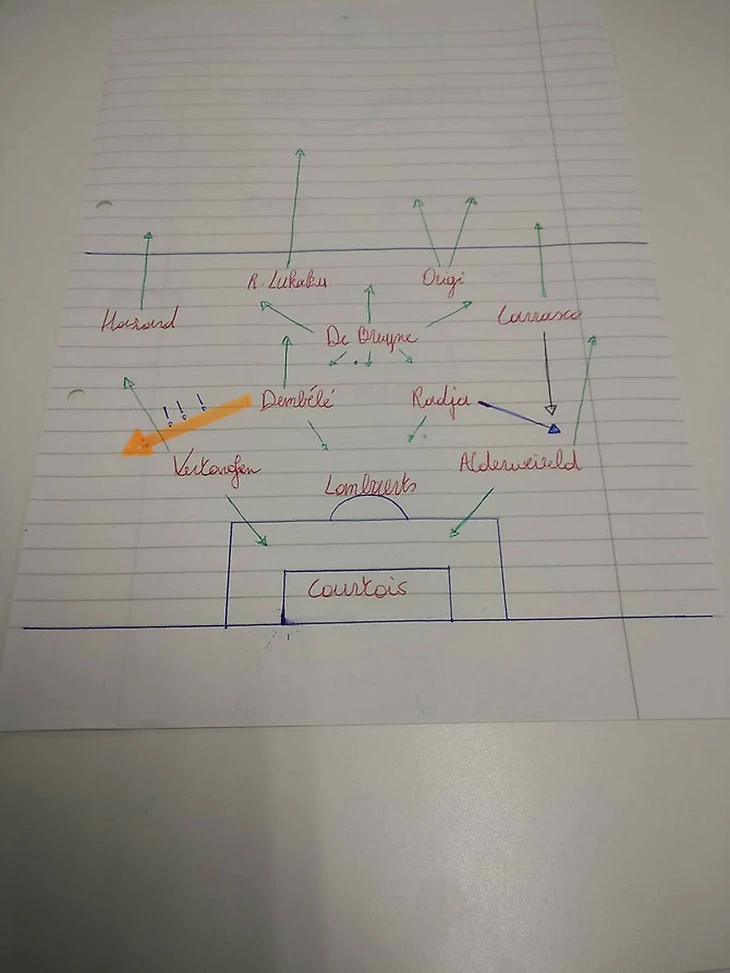 R. Lukaku Origi
Hazard Carrasco
De Bruyne
Dembélé Radja
! ! !
Vertonghen Alderweireld
Lombaerts
Courtois